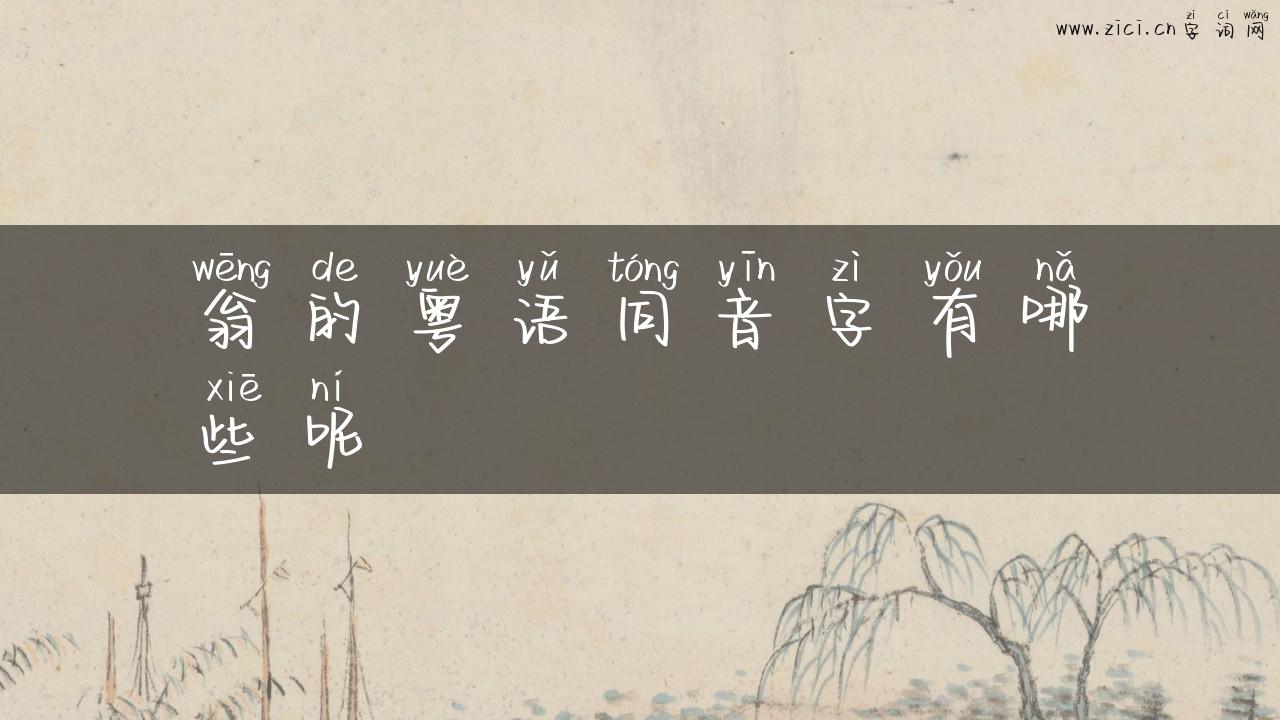 zì cí wǎng
www.zici.cn字词网
wēng de yuè yǔ tóng yīn zì yǒu nǎ
翁的粤语同音字有哪
xiē ní
些呢